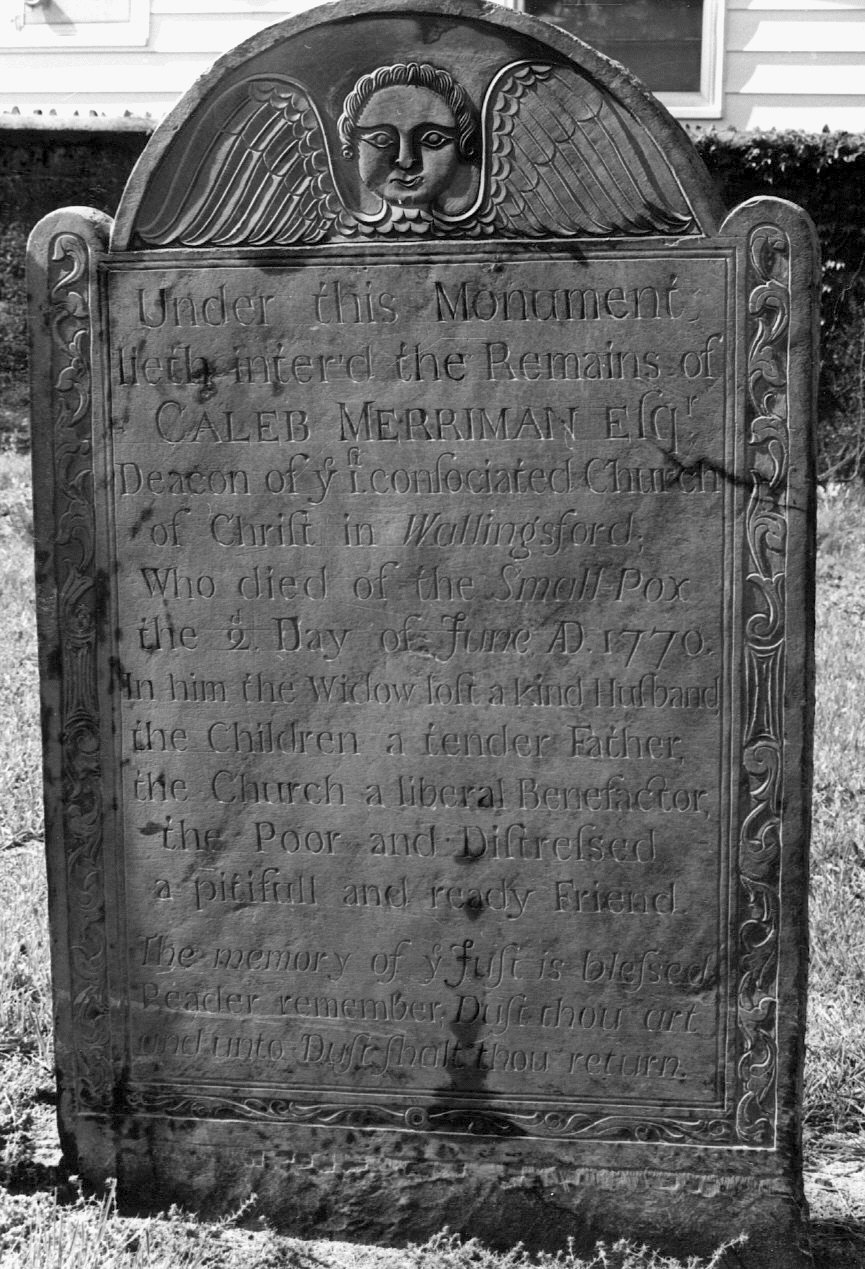 Under this Monument,
lieth inter'd the Remains of
CALEB MERRIMAN Eſqr,
Deacon of ye ſt. conſociated Church
of Chriſt in Wallingsford;
Who died of the Small-Pox
the 2d. Day of June AD. 1770.
In him the Widow loſt a kind Huſband
the Children a tender Father,
the Church a liberal Benefactor,
the Poor and Diſtreſsed
a pitifull and ready Friend.
The memory of ye Juſt is bleſsed
Reader remember, Duſt thou art
and unto Duſt ſhalt thou return.